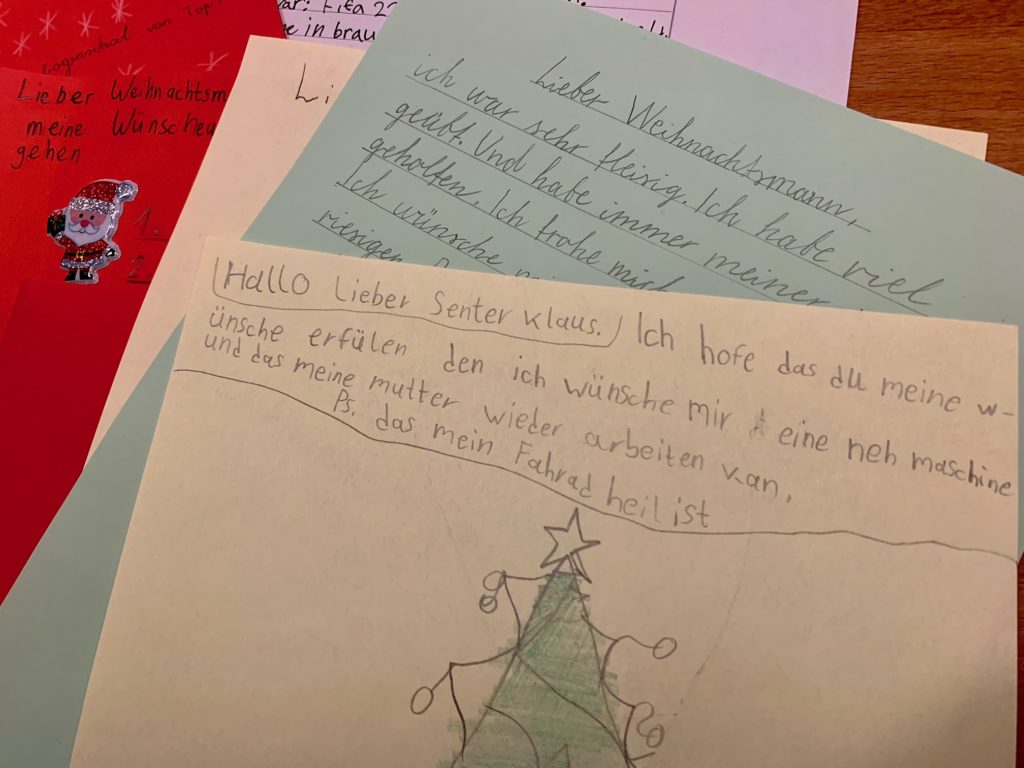 Lieber Weihnachtsm
meine Wünsche
gehen
1.
2.
Fifa
in brau
Li
Lieber Weihnachtsmann,
ich war sehr fleisig. Ich habe viel
geübt. Und habe immer meiner
geholfen. Ich frohe mich
Ich wünsche
riesigen
Hallo Lieber Senter klaus. Ich hofe das du meine w-
ünsche erfülen den ich wünsche mir eine neh maschine
und das meine mutter wieder arbeiten kan.
Ps. das mein Fahrad heil ist